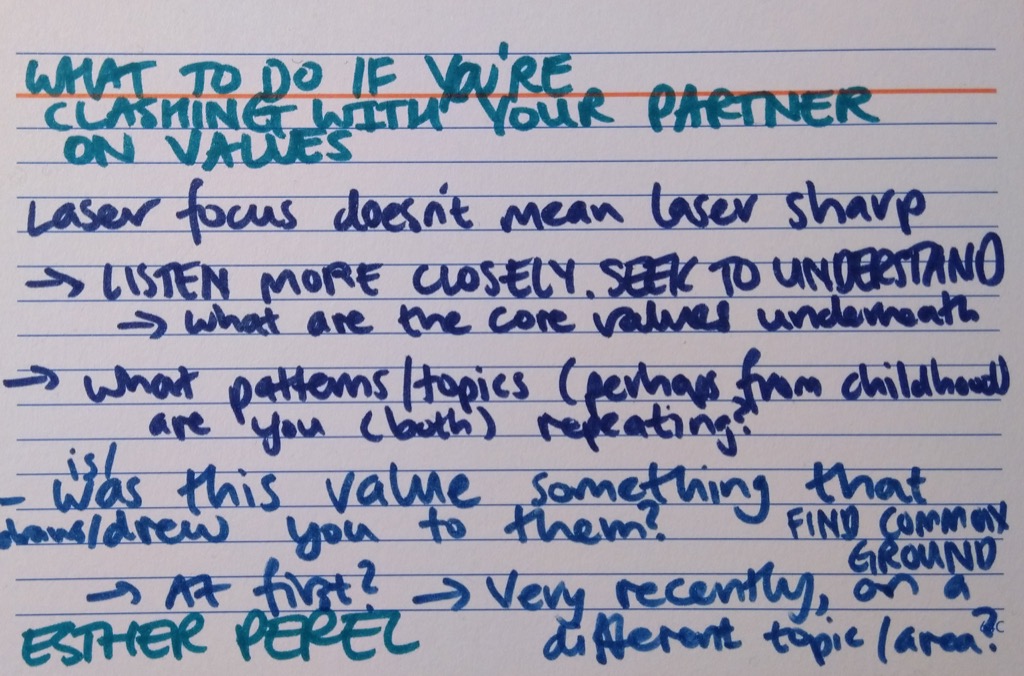 WHAT TO DO IF YOU'RE
CLASHING WITH YOUR PARTNER
ON VALUES
Laser focus doesn't mean laser sharp
→ LISTEN MORE CLOSELY. SEEK TO UNDERSTAND
→ what are the core values underneath
→ what patterns/topics (perhaps from childhood)
are you (both) repeating?
is/
- was this value something that
draws/drew you to them?
FIND COMMON
GROUND
→ AT first? → Very recently, on a
different topic/area?
ESTHER PEREL